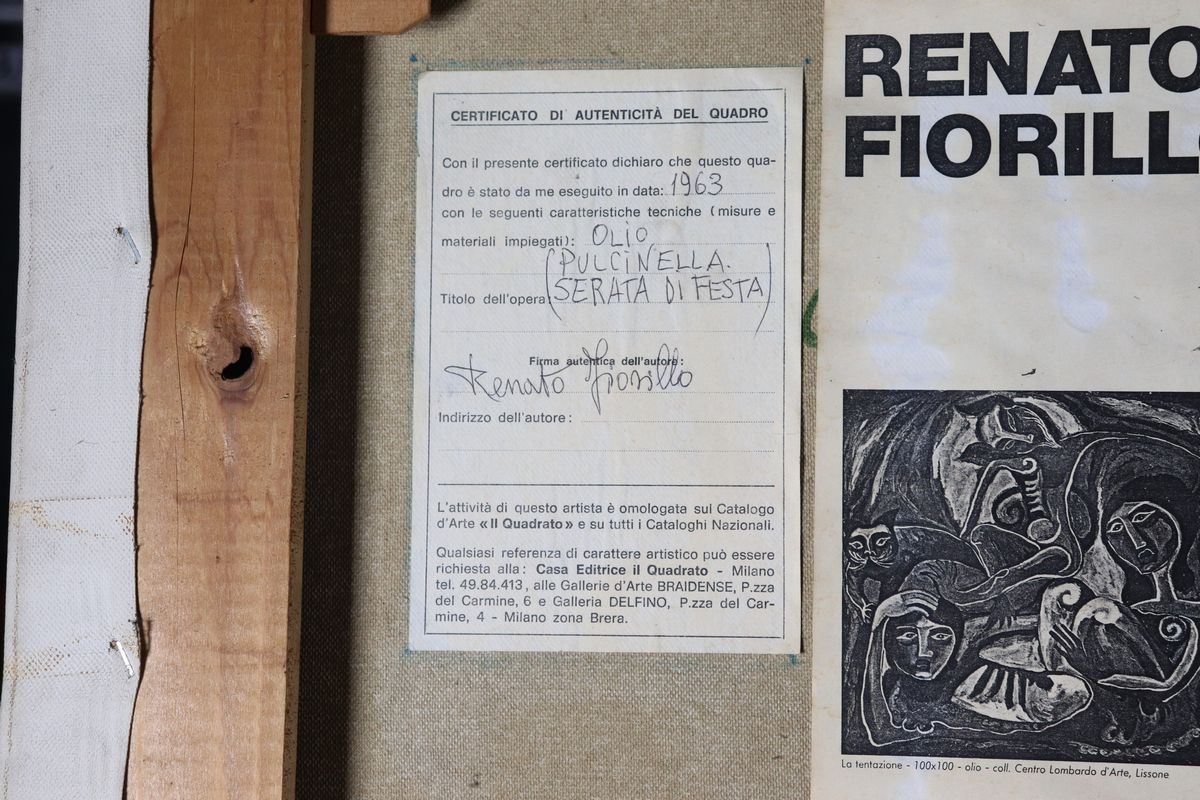 CERTIFICATO DI AUTENTICITÀ DEL QUADRO
Con il presente certificato dichiaro che questo qua-
dro è stato da me eseguito in data: 1963
con le seguenti caratteristiche tecniche (misure e
materiali impiegati): OLIO
(PULCINELLA.
Titolo dell'opera: SERATA DI FESTA)
Firma autentica dell'autore:
Renato Fiorillo
Indirizzo dell'autore:
L'attività di questo artista è omologata sul Catalogo
d'Arte «Il Quadrato» e su tutti i Cataloghi Nazionali.
Qualsiasi referenza di carattere artistico può essere
richiesta alla: Casa Editrice il Quadrato - Milano
tel. 49.84.413, alle Gallerie d'Arte BRAIDENSE, P.zza
del Carmine, 6 e Galleria DELFINO, P.zza del Car-
mine, 4 - Milano zona Brera.
RENATO
FIORILLO
La tentazione - 100x100 - olio - coll. Centro Lombardo d'Arte, Lissone